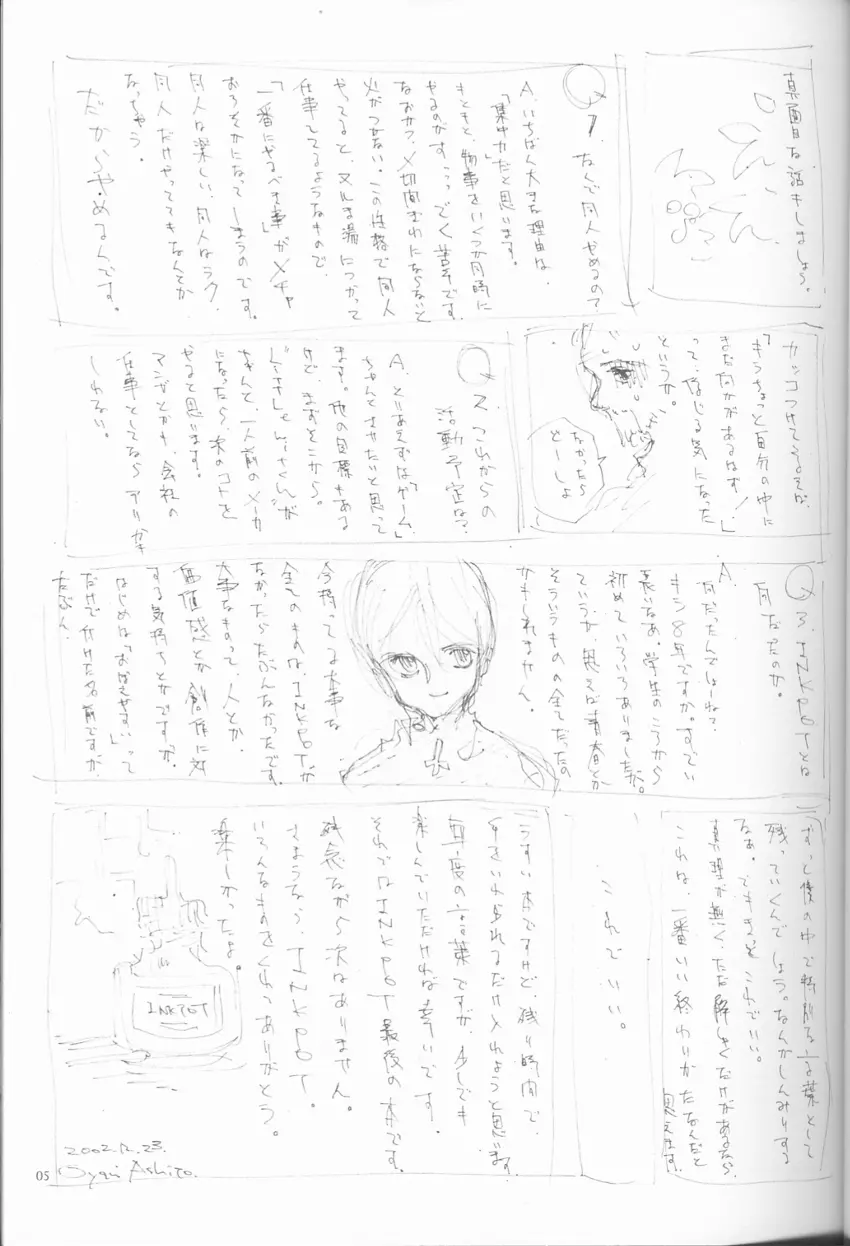 真面目な話もしましょう。
Q1.なんで同人やめるの?
A.いちばん大きな理由は、
「集中力」だと思います。
もともと、物事をいくつか同時に
やるのがすっっごく苦手です。
なおかつ、〆切間ぎわにならないと
火がつかない。この性格で同人
やってると、ヌルま湯につかって
仕事してるようなもので、
「一番にやるべき事」がメチャ
おろそかになってしまうのです。
同人は楽しい、同人はラク、
同人だけやってるなんとか
なっちゃう。
だからやめるんです。
カッコつけてるが、
「もうちょっと自分の中に
まだ何かがあるはず!」
って、信じる気になった
というか。
なかったら
どーしよ
Q2.これからの
活動予定は?
A.とりあえずは「ゲーム」
ちゃんとさせたいと思って
ます。他の目標もある
けど、まずそこから。
ちゃんと、一人前のメーカ
になったら、次のコトを
やると思います。
マンガとかも、会社の
仕事としてなら アリかも
しれない。
Q3.INKPOTとは
何だったのか。
A.
何だったんでしょーねえ?
もう8年ですか。すごい
長いなあ。学生のころから
初めていろいろありましたが。
ていうか、思えば青春とか
そういうものの全てだったの
かもしれません。
今持ってる大事な
全てのものは、INKPOTが
なかったらたぶんなかったです。
大事なものって、人とか、
価値感とか創作に対
する気持ちとかですが。
はじめは「おぼえやすい」って
だけで付けた名前ですが、
たぶん、
ずっと僕の中で特別な言葉として
残っていくんでしょう。なんかしんみりする
なぁ。でもきっとこれでいい。
真理が無く、ただ解しくだけがあるなら、
これは、一番いい終わりかたなんだと
思えます。
これでいい。
うすい本ですけど、残り時間で、
手をいれられるだけ入れようと思います。
毎度の言葉ですが、少しでも
楽しんでいただければ幸いです。
それではINKPOT最後の本です。
残念ながら次はありません。
さようなら、INKPOT。
いろんなものをくれてありがとう。
楽しかったよ。
INKPOT
2002.12.23.
Oyari Ashito.
05